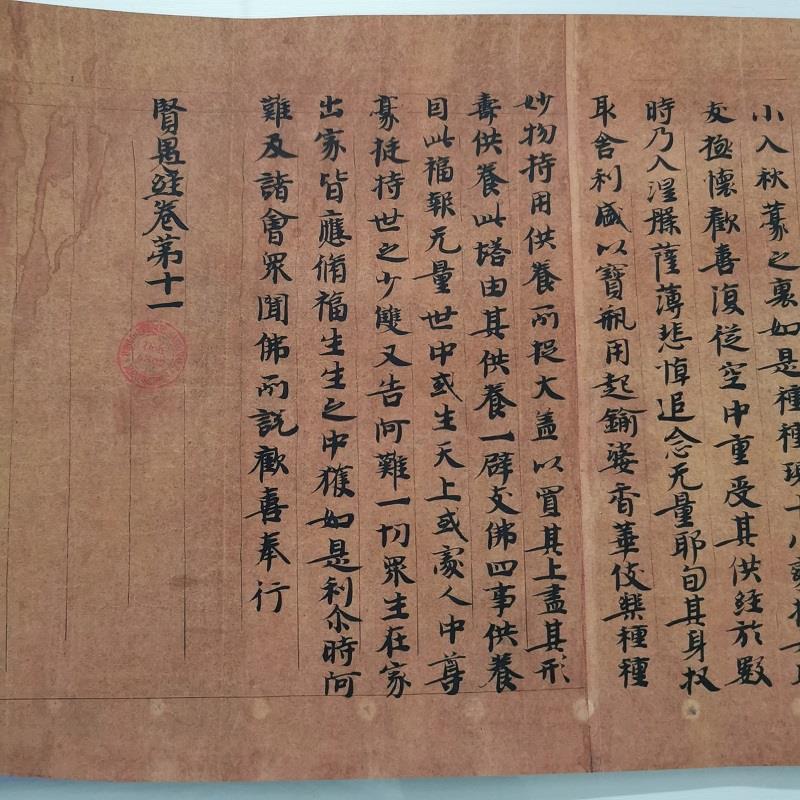 小入秋豪之裏如是種種現十八變
友極懷歡喜復從空中重受其供經於數
時乃入涅槃薩薄悲悼追念无量耶旬其身收
取舍利盛以寶瓶用起鍮婆香華伎樂種種
妙物持用供養所捉大蓋以置其上盡其形
壽供養此塔由其供養一辟支佛四事供養
因此福報无量世中或生天上或處人中尊
豪挺持世之少雙又告阿難一切眾生在家
出家皆應脩福生生之中獲如是利尒時阿
難及諸會眾聞佛所說歡喜奉行
賢愚經卷第十一